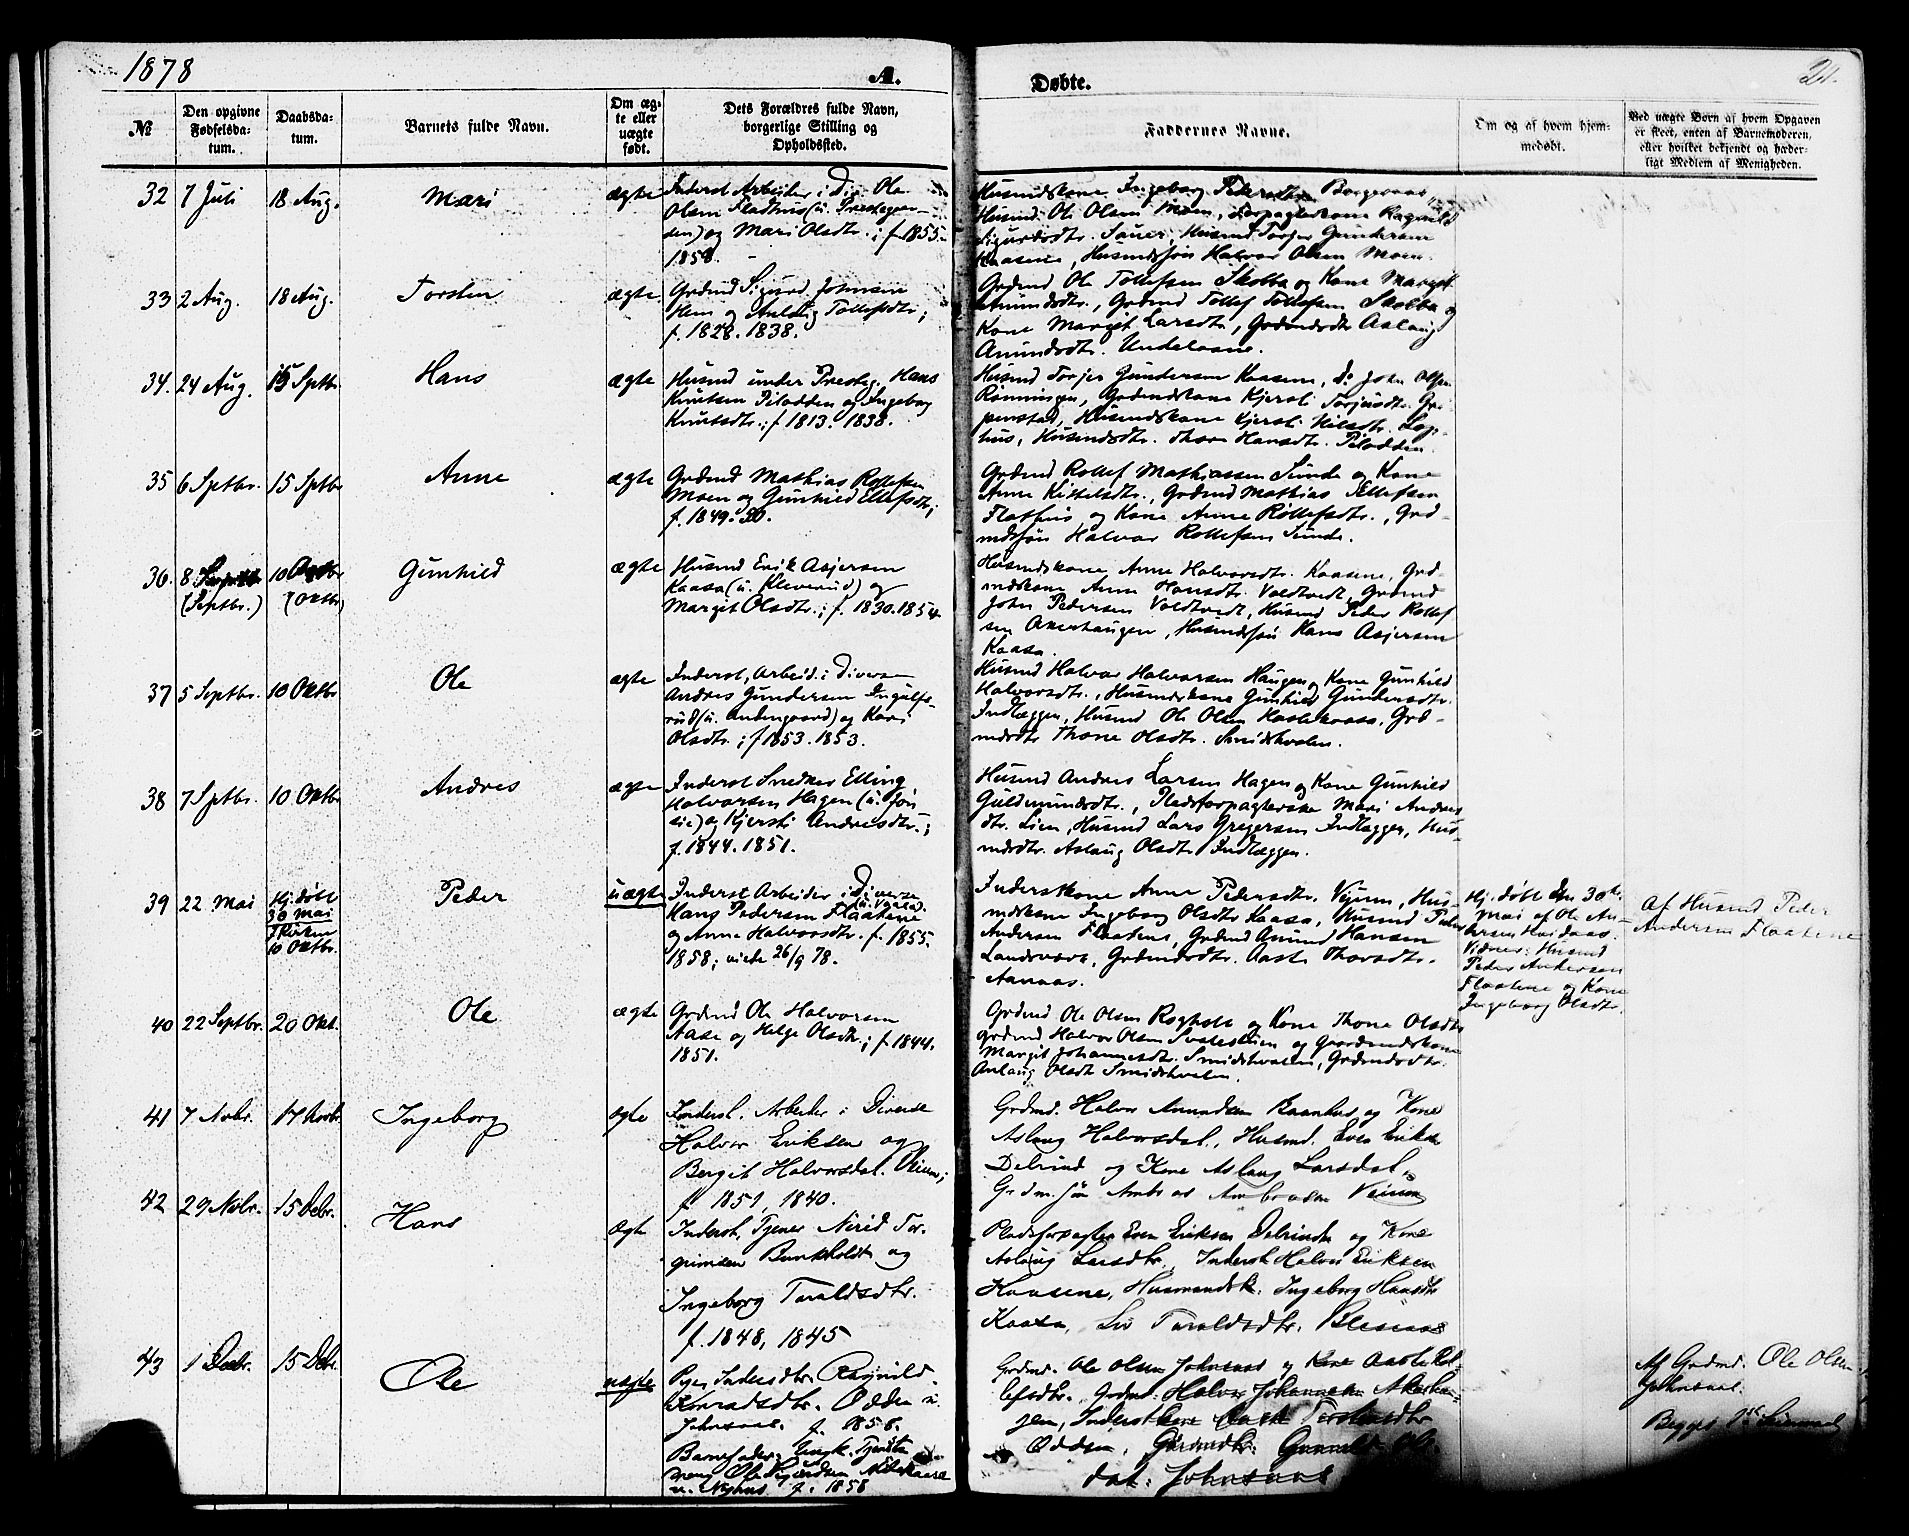 1878
A.
Døbte.
21.
№
Den opgivne
Fødselsda-
tum.
Daabsda-
tum.
Barnets fulde Navn.
Om æg-
te eller
uægte
født.
Dets Forældres fulde Navn,
borgerlige Stilling og
Opholdssted.
Faddernes Navne.
Om og af hvem hjem-
medøbt.
Ved uægte Børn af hvem Opgaven
er skeet, enten af Barnemoderen,
eller hvilket bekjendt og hæder-
ligt Medlem af Menigheden.
32
7 Juli
18 Aug.
Mari
ægte
Inderst Arbeider i Div. Ole
Olsen Fladhus (u. Prestegaar-
den) og Mari Olsdtr.; f. 1855.
1858.
Husmdskone Ingeborg Pedersdtr.
Husmd. Ole Olsen Moen, Forpagterkone Ragnild
Sigurdsdtr. Sauer, Husmd Torjer Gundersen
Kaasene, Husmdssøn Halvor Olsen Moen.
33
2 Aug.
18 Aug.
Torsten
ægte
Grdmd Sigurd Johnsen
Hem og Aslaug Tollefsdtr.;
f. 1828. 1838.
Grdmd Ole Tollefsen Skobba og Kone Margit
Amundsdtr., Grdmd Tollef Tollefsen Skobba og
Kone Margit Larsdtr., Grdmdsdtr Aslaug
Amundsdtr.
34.
24 Aug.
15 Sptbr.
Hans
ægte
Husmd under Presteg. Hans
Knutsen Pilodden og Ingeborg
Knutsdtr.; f. 1813. 1838.
Husmd Torjer Gundersen Kaasene, do John Olsen
Rønningen, Grdmdskone Kjersti Torjusdtr. Gri-
penstad, Husmdskone Kjersti Nilsdtr. Lop-
hus, Husmdsdtr. Thore Hansdtr. Pilodden.
35
6 Sptbr.
15 Sptbr
Anne
ægte
Grdmd Mathias Rollefsen
Moen og Gunhild Ellefsdtr.;
f. 1849. 50.
Grdmd Rollef Mathiassen Sunde og Kone
Anne Kittilsdtr., Grdmd Mathias Tollefsen
Flathus og Kone Anne Rollefsdtr., Grd-
mdssøn Halvor Rollefsen Sunde.
36.
8
(Septbr.)
10
(Oktbr)
Gunhild
ægte
Husmd Erik Asjersen
Kaasa (u. Kleverud) og
Margit Olsdtr.; f. 1830. 1854.
Husmdskone Anne Halvorsdtr. Kaasene, Grd-
mdskone Anne Hansdtr. Voldtvedt, Grdmd
John Pedersen Voldtvedt, Husmd Peder Rollef
sen Akerhaugen, Husmdssøn Hans Asjersen
Kaasa.
37
5 Septbr.
10 Oktbr
Ole
ægte
Inderst, Arbeid. i Diverse
Andres Gundersen Ingulfs-
rud (u. Andengaard) og Kari
Olsdtr.; f 1853. 1853.
Husmd Halvor Halvorsen Haugen og Kone Gunhild
Halvorsdtr., Husmdskone Gunhild Gundersdtr.
Indlæggen, Husmd Ole Olsen Haslekaasa, Grd-
mdsdtr Thone Olsdtr. Smidshvalen.
38
7 Sptbr.
10 Oktbr
Andres
ægte
Inderst Snedker Elling
Halvorsen Hagen (u. Jøn
sie) og Kjersti Andresdtr.;
f. 1844. 1851.
Husmd Andres Larsen Hagen og Kone Gunhild
Guldmundsdtr., Pladsforpagterske Mari Andres
dtr. Lien, Husmd Lars Gregersen Indlæggen, Hus-
mdsdtr. Aslaug Olsdtr. Indlæggen.
39
22 Mai
Hj. døbt
30 Mai
I Kirken
10 Oktbr.
Peder
uægte
Inderst Arbeider i Diverse
Hans Pedersen Flaatene
og Anne Halvorsdtr. f. 1855.
1858; viede 26/9 78.
Inderstkone Anne Pedersdtr. Veium, Hus-
mdskone Ingeborg Olsdtr Kaasa, Husmd Peder
Andersen Flaatene, Grdmd Amund Hansen
Landsværk, Grdmdsdtr. Aaste Thorsdtr.
Aanaas.
Hj. døbt den 30te
Mai af Ole An-
dersen Hvidaas.
Vidner: Husmd
Peder Andersen
Flaatene og Kone
Ingeborg Olsdtr.
Af Husmd Peder
Andersen Flaatene
40
22 Septbr.
20 Okt.
Ole
ægte
Grdmd Ole Halvorsen
Aase og Helge Olsdtr.; f. 1844.
1851.
Grdmd Ole Olsen Rogholt og Kone Thone Olsdtr
Grdmd. Halvor Olsen og Gaardmandskone
Margit Johannesdtr. Smidshvalen, Grdmdsdtr.
Aslaug Olsdt Smidshvalen.
41
7 Novbr.
17 Novbr.
Ingeborg
ægte
Inderst. Arbeider i Diverse
Halvor Eriksen og
Bergit Halvorsdat. Veium;
f. 1851, 1840.
Grdmd. Halvor Amundsen Baanhus og Kone
Aslaug Halvorsdat., Husmd. Even Eriksen
Delrind og Kone Aslaug Larsdat.,
Grdm.søn Ambros Ambrosen Veium
42
29 Novbr.
15 Debr.
Hans
Ægte
Inderst, Tjener Nirid Tor-
grimsen Bunkholdt og
Ingeborg Taraldsdtr.
f. 1848, 1845
Pladsforpagter Even Eriksen Delrind og Kone
Aslaug Larsdtr., Inderst Halvor Eriksen
Kaasene, Husmandsk. Ingeborg Hansdtr
Kaasa, Liv Taraldsdtr. Blesaas
43
1 Decbr.
15 Debr.
Ole
uægte
Pige, Indersdtr. Ragnild
Konradsdtr. Odden u.
Johnsaas. f. 1858.
Barnefader: Ungk. Tjeneste
mand Ole Sigurdsen
u. Nyhus f. 1858
Grdmd. Ole Olsen Johnsaas og Kone Aaste Rol-
lefsdtr., Grdmd. Halvor Johannesen Akerhau-
gen, Inderstkone Torstensdtr
Odden, Gaardmdtr. Gunnild Ols-
dat. Johnsaas
Af Grdmd. Ole Olsen
Johnsaas.
Begges